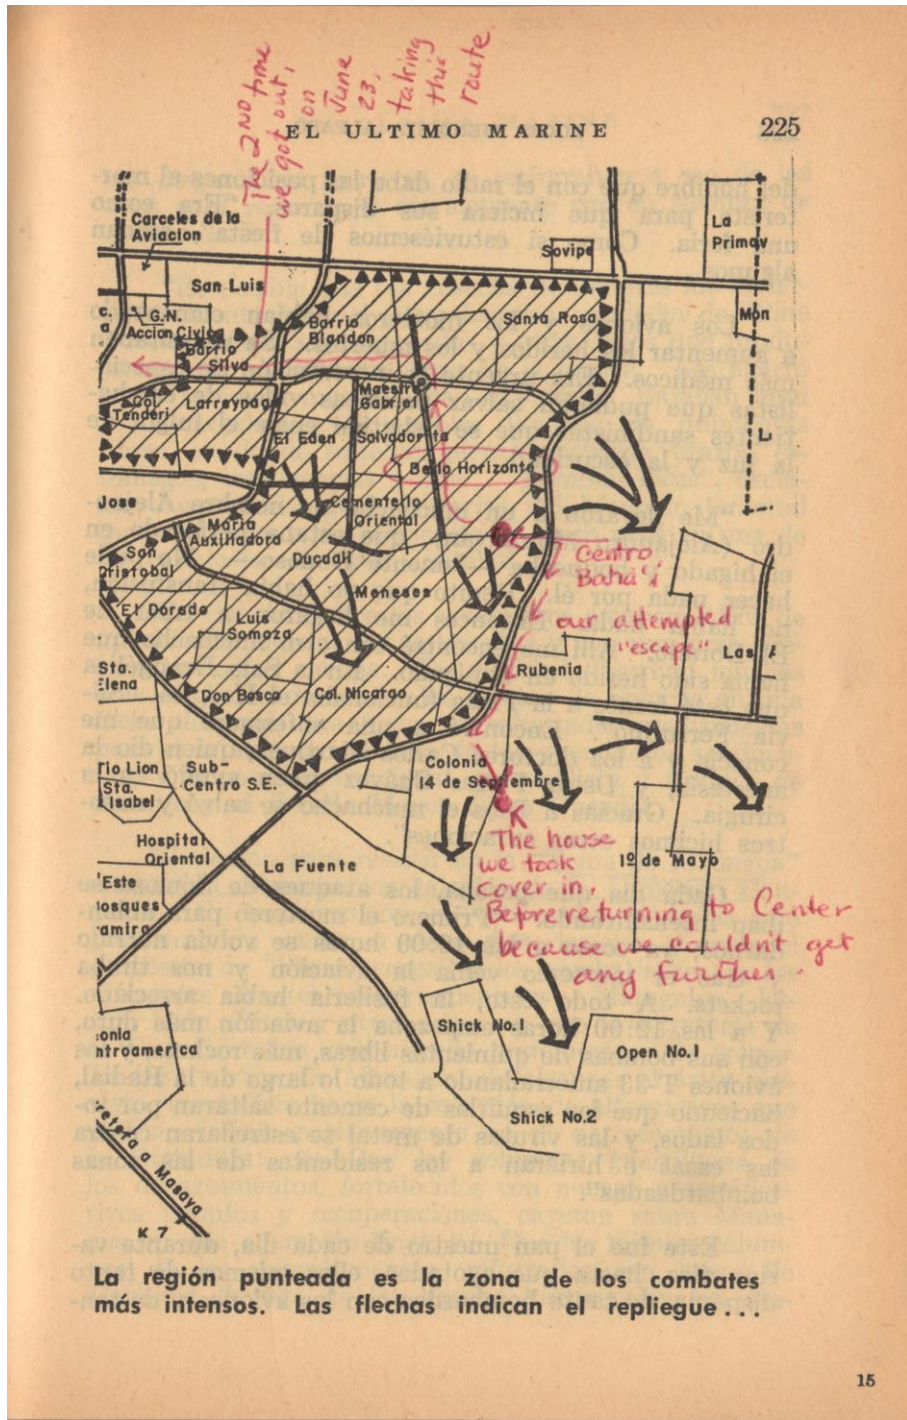 The 2ND time
we got out,
on
June
23,
taking
this
route.
EL ULTIMO MARINE
225
Carceles de la
Aviacion
La
Primav
Sovipe
San Luis
G.N.
Accion Civica
c.
a
Mon
Barrio
Blandon
Santa Rosa
Barrio
Silva
Col.
Tenderi
Larreynaga
Maestro
Gabriel
El Eden
Salvadorita
Bello Horizonte
Jose
Cementerio
Oriental
Maria
Auxiliadora
San
Cristobal
Ducuali
Centro
Baha'i
Meneses
El Dorado
Luis
Somoza
our attempted
"escape"
Las
Sta.
Elena
Rubenia
Don Bosco
Col. Nicarao
Tio Lion
Sta.
Isabel
Sub-
Centro S.E.
Colonia
14 de Septiembre
Hospital
Oriental
La Fuente
The house
we took
cover in.
Before returning to Center
because we couldn't get
any further.
1º de Mayo
'Este
losques
amire
Shick No.1
Open No.1
onia
ntroamerica
Shick No.2
retera a Masaya
K 7
La región punteada es la zona de los combates
más intensos. Las flechas indican el repliegue ...
15